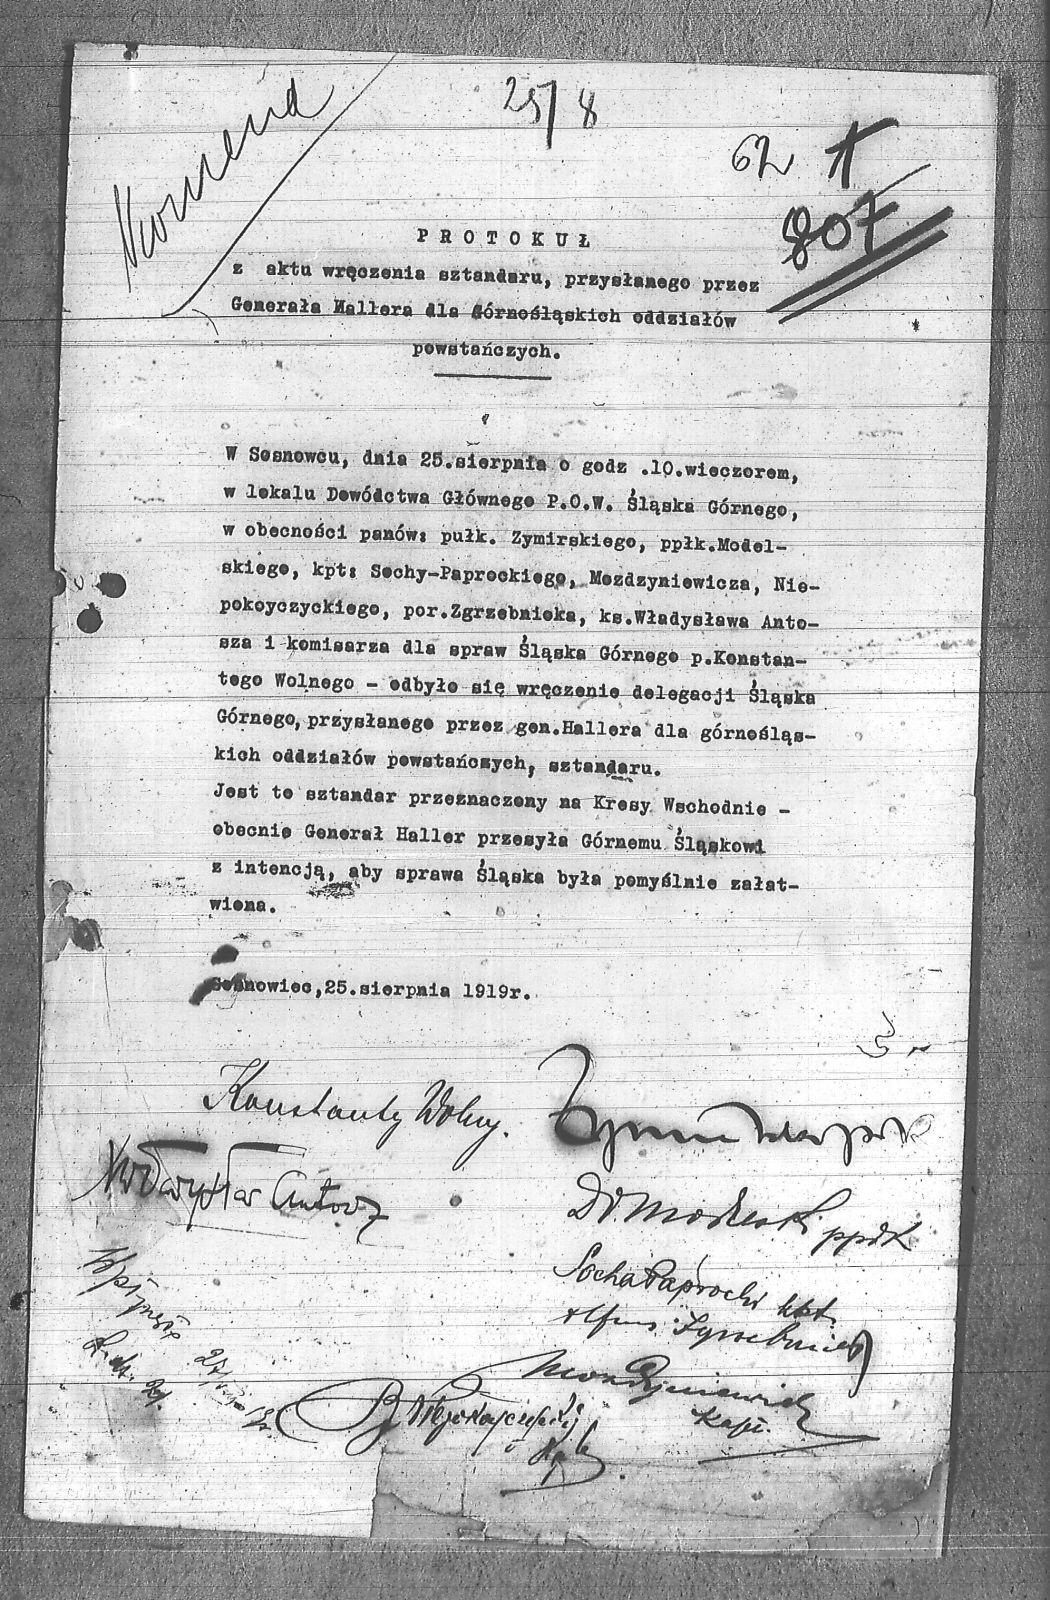 25/8
62
807
PROTOKUŁ
z aktu wręczenia sztandaru, przysłanego przez
Generała Hallera dla Górnośląskich oddziałów
powstańczych.
W Sosnowcu, dnia 25.sierpnia o godz .10.wieczorem,
w lokalu Dowództwa Głównego P.O.W. Śląska Górnego,
w obecności panów: pułk. Zymirskiego, ppłk.Model-
skiego, kpt: Sochy-Paprockiego, Mozdzyniewicza, Nie-
pokoyczyckiego, por.Zgrzebnioka, ks.Władysława Anto-
sza i komisarza dla spraw Śląska Górnego p.Konstan-
tego Wolnego - odbyło się wręczenie delegacji Śląska
Górnego, przysłanego przez gen.Hallera dla górnoślą-
skich oddziałów powstańczych, sztandaru.
Jest to sztandar przeznaczony na Kresy Wschodnie -
obecnie Generał Haller przesyła Górnemu Śląskowi
z intencją, aby sprawa Śląska była pomyślnie załat-
wiona.
Sosnowiec,25.sierpnia 1919r.
Konstanty Wolny.
Władysław Antosz
Dr. Modelski ppłk
Socha Paprocki kpt.
Mozdyniewicz
Kapt.